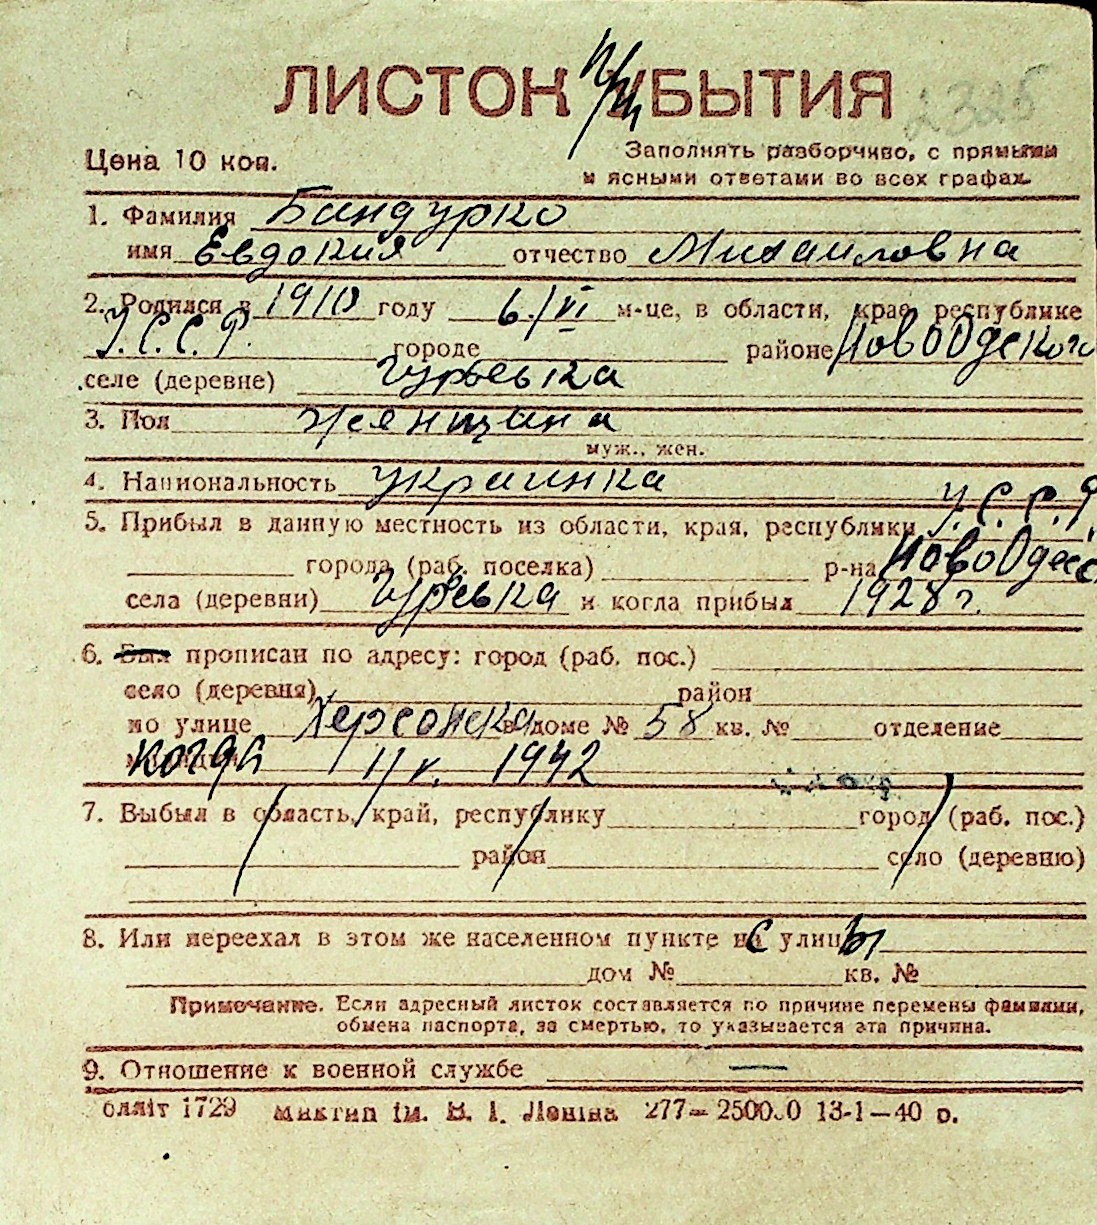 ЛИСТОК УБЫТИЯ
2325
Цена 10 коп.
Заполнять разборчиво, с прямыми
и ясными ответами во всех графах.
1. Фамилия Бандурко
имя Евдокия отчество Михайловна
2. Родился в 1910 году 6/VI м-це, в области, крае, республике
У.С.С.Р. городе районе Ново Одеского
селе (деревне) Гурьевка
3. Пол женщина
муж., жен.
4. Национальность украинка
5. Прибыл в данную местность из области, края, республики У.С.С.Р.
города (раб. поселка) р-на Ново Одес
села (деревни) Гурьевка и когда прибыл 1928 г.
6. Был прописан по адресу: город (раб. пос.)
село (деревня) район
по улице Херсонска в доме № 58 кв. № отделение
когда 1942
7. Выбыл в область, край, республику город (раб. пос.)
район село (деревню)
8. Или переехал в этом же населенном пункте с улицы
дом № кв. №
Примечание. Если адресный листок составляется по причине перемены фамилии,
обмена паспорта, за смертью, то указывается эта причина.
9. Отношение к военной службе —
блліт 1729 Миктип ім. В. І. Леніна 277—250000 13-1—40 р.